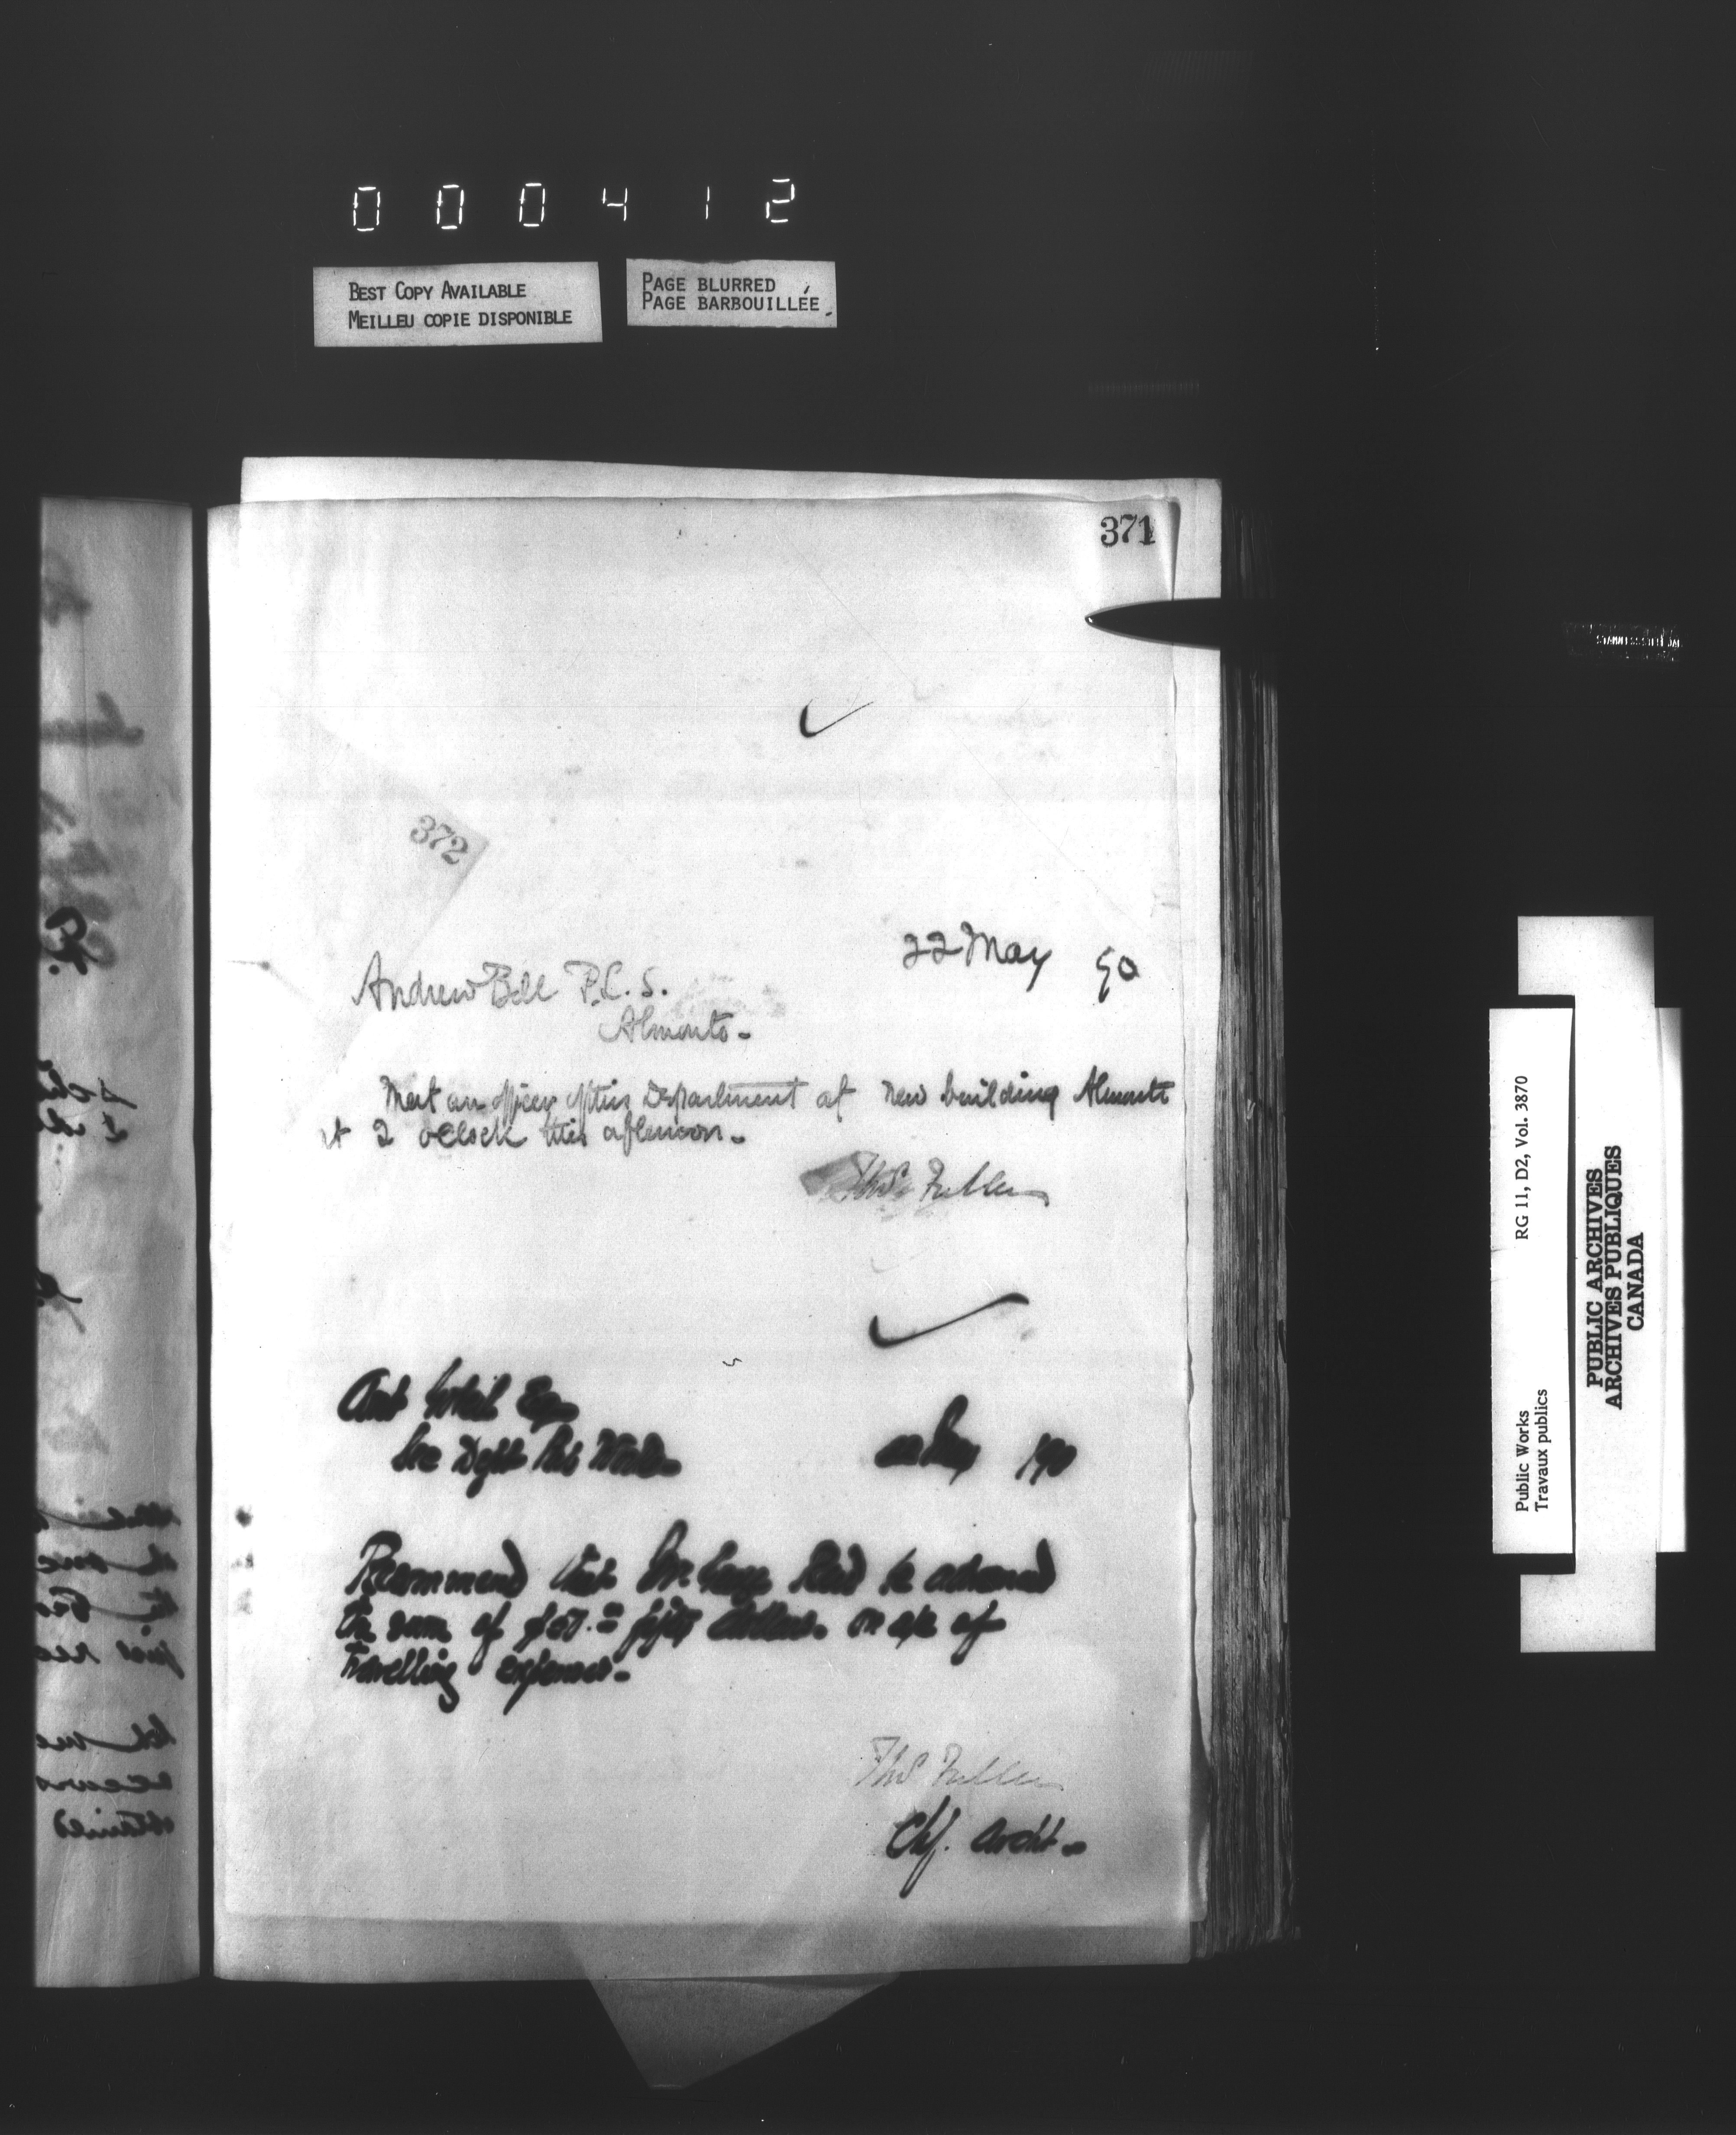 000412
BEST COPY AVAILABLE
MEILLEU COPIE DISPONIBLE
PAGE BLURRED
PAGE BARBOUILLÉE
371
372
22 May 90
Andrew Bell P.L.S.
Almonte.
Meet an officer of this Department at new building Almonte
at 2 o'clock this afternoon.
Thos Fuller
Esq
Sec Dept Pub Works
22 May /90
Recommend that Reid be advanced
the sum of $50.00 fifty dollars. on a/c of
travelling expenses.
Thos Fuller
Chf. Archt.
Public Works
Travaux publics
RG 11, D2, Vol. 3870
PUBLIC ARCHIVES
ARCHIVES PUBLIQUES
CANADA